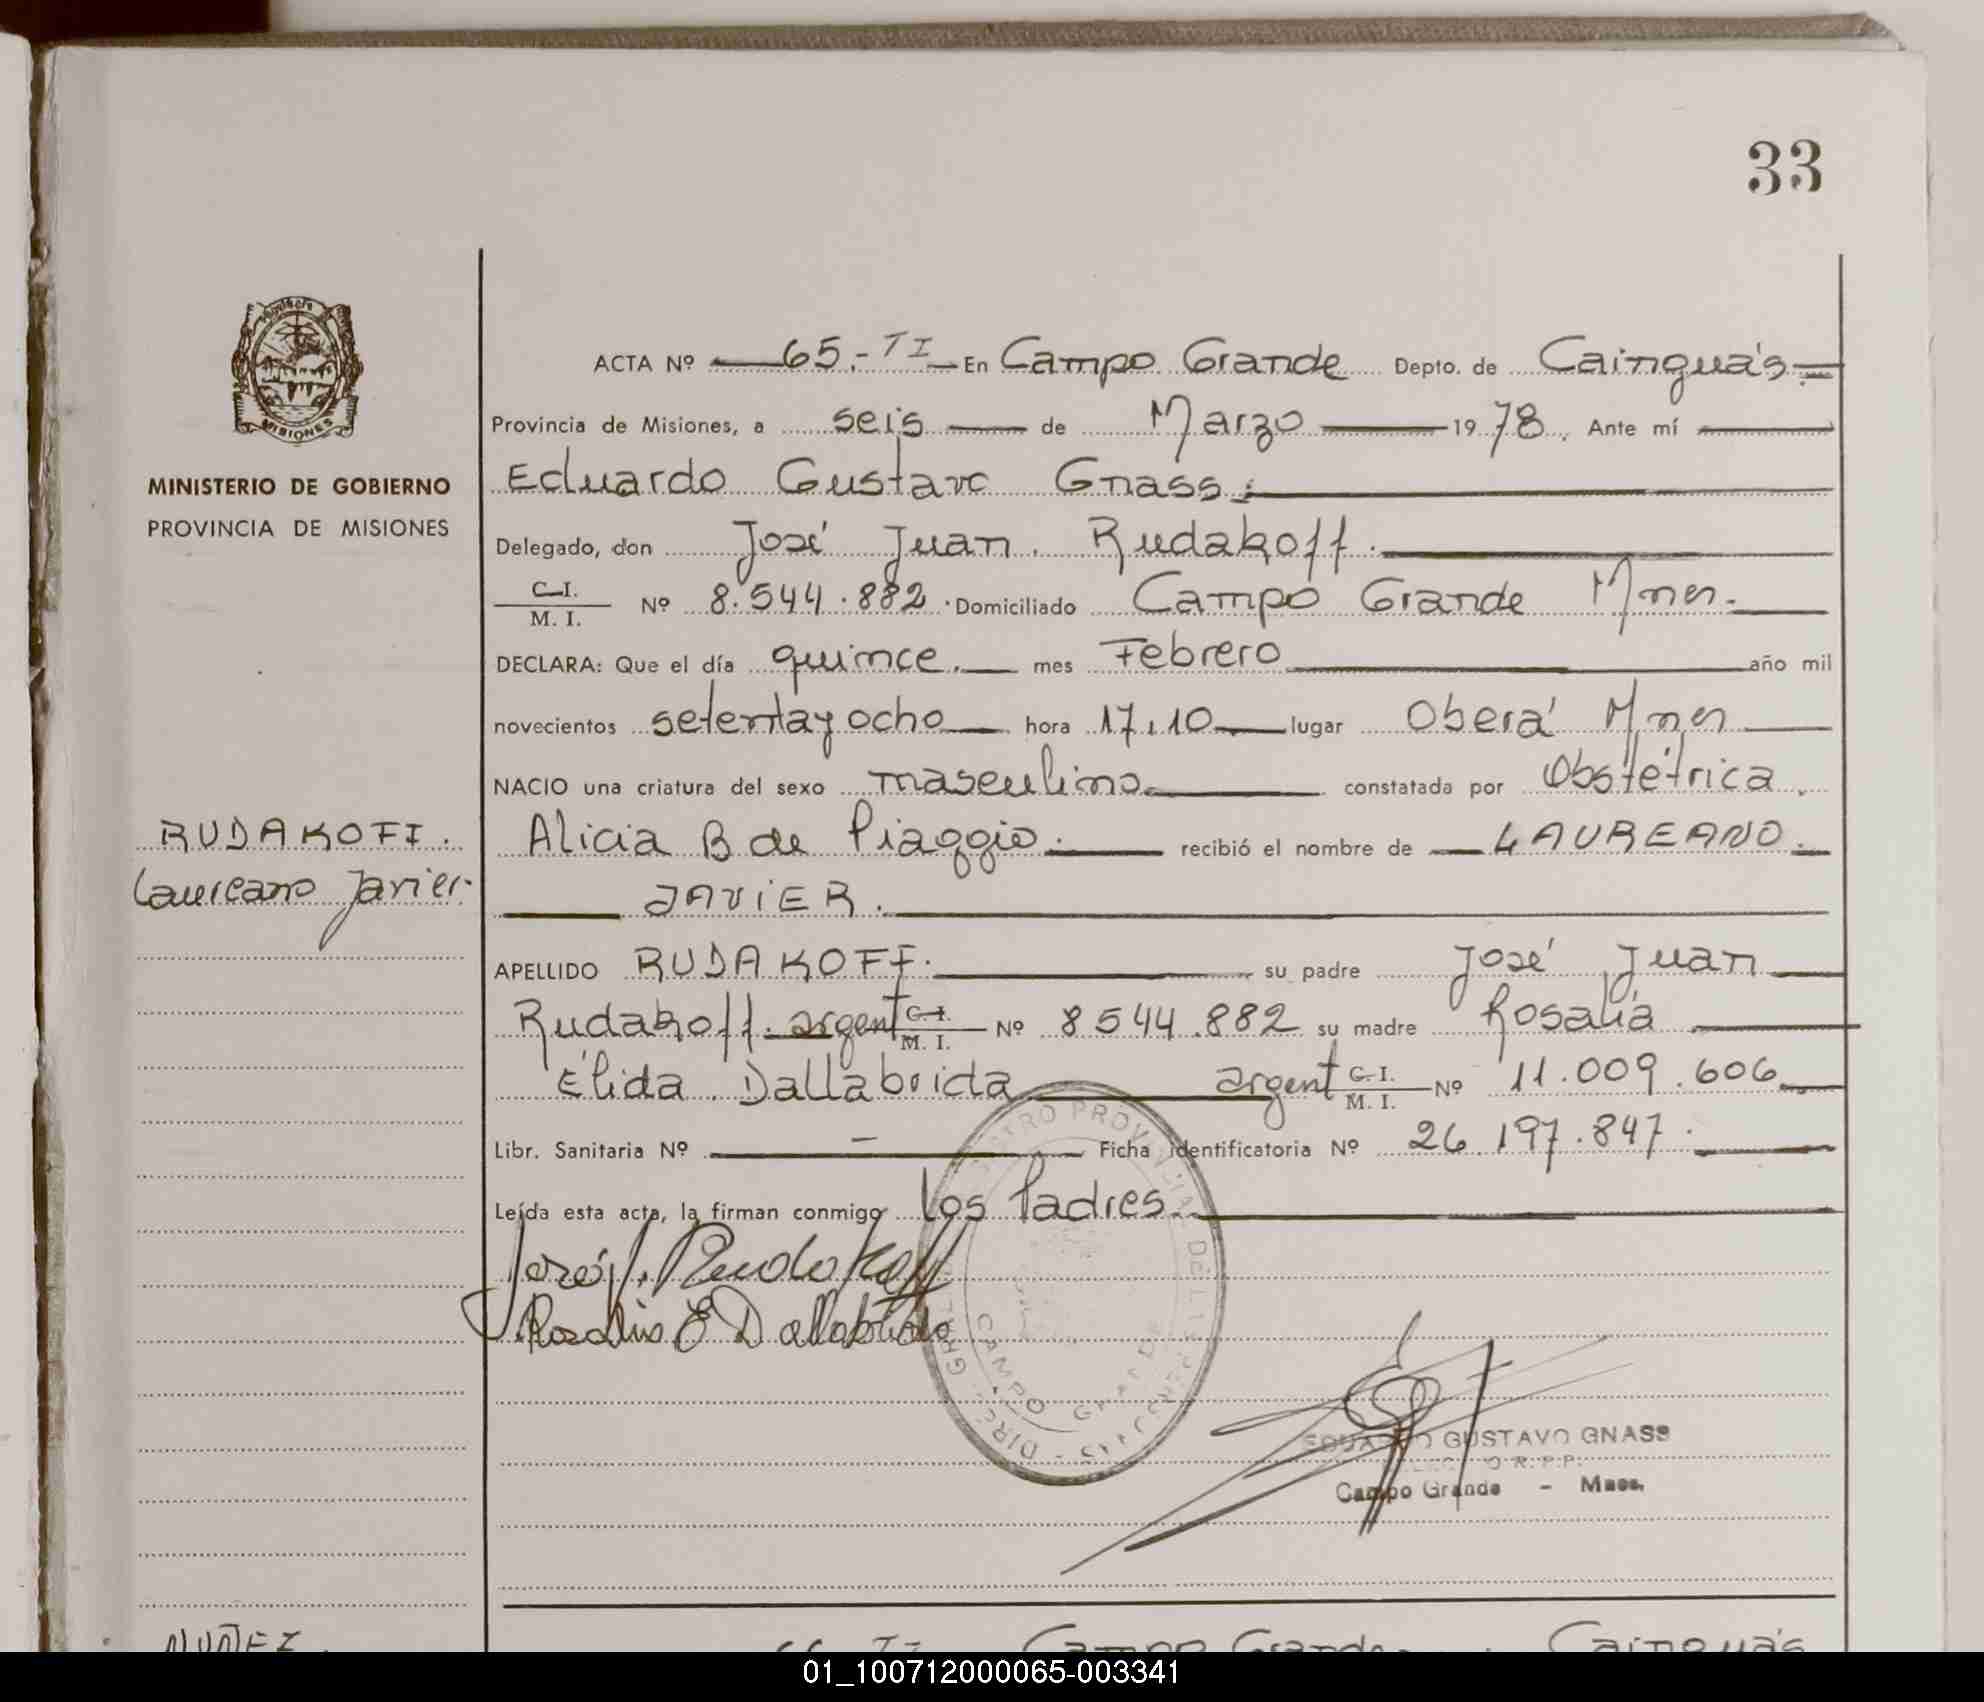 33
Provincia
MISIONES
MINISTERIO DE GOBIERNO
PROVINCIA DE MISIONES
RUDAKOFF.
Laureano Javier.
ACTA Nº 65.- TI En Campo Grande Depto. de Cainguás
Provincia de Misiones, a seis de Marzo 1978. Ante mí
Eduardo Gustavo Gnass.
Delegado, don José Juan Rudakoff.
C.I.
M. I. Nº 8.544.882. Domiciliado Campo Grande Mnes.
DECLARA: Que el día quince. mes Febrero año mil
novecientos setenta y ocho hora 17,10 lugar Oberá Mnes
NACIO una criatura del sexo masculino. constatada por Obstétrica.
Alicia B de Piaggio. recibió el nombre de LAUREANO.
JAVIER.
APELLIDO RUDAKOFF. su padre José Juan
Rudakoff. argent C.I.
M. I. Nº 8544.882 su madre Rosalía
Élida. Dallabrida argent C.I.
M. I. Nº 11.009.606
Libr. Sanitaria Nº - Ficha identificatoria Nº 26.197.847.
Leída esta acta, la firman conmigo los Padres.
José J. Rudakoff
Rosalia E Dallabrida
CAMPO GRANDE
EDUARDO GUSTAVO GNASS
R.P.P.
Campo Grande - Mnes.
NUÑEZ.
66 TI Campo Grande Cainguás
01_100712000065-003341